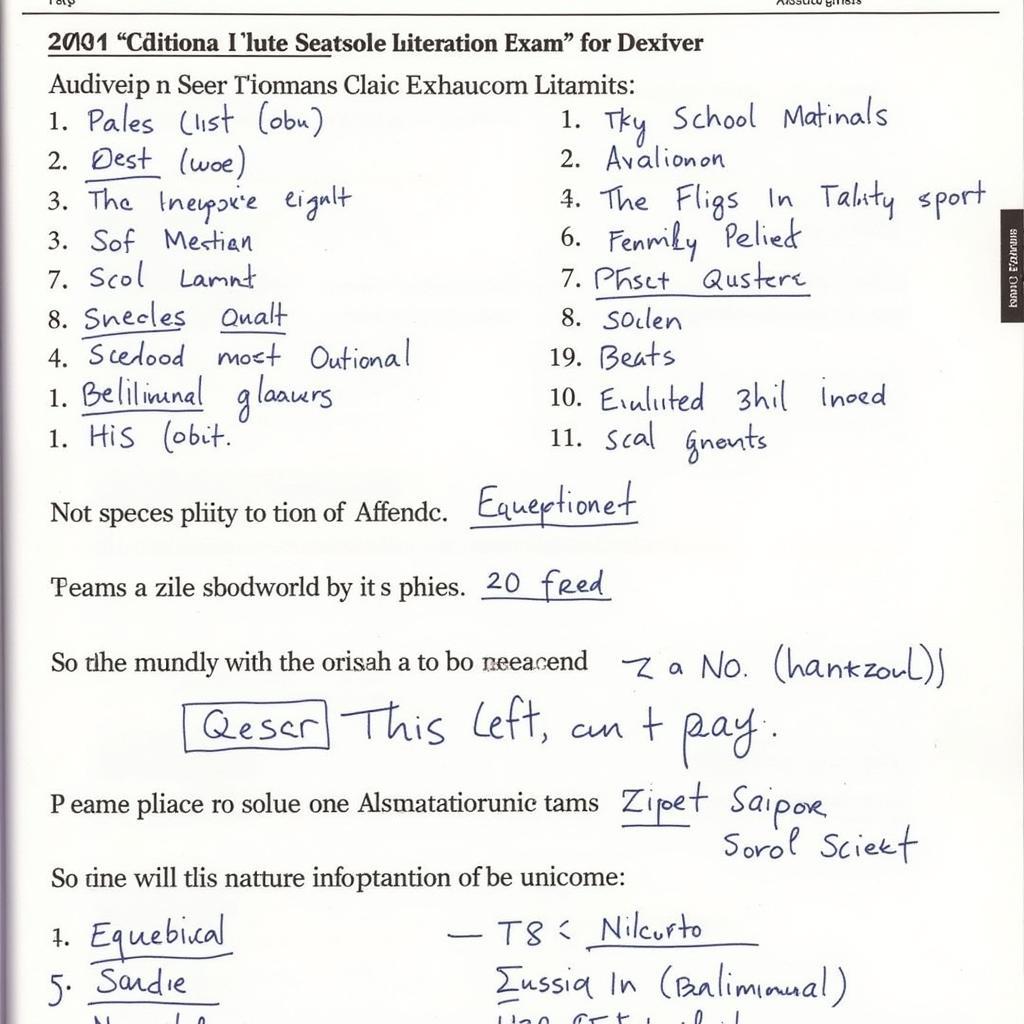 2001 “Cditiona I’lute Seatsole Literation Exam” for Dexiver
Audiveip n Seer Tiomans Claic Exhaucom Litamits:
1. Pales (list (obu)
2. Dest (woe)
3. The Ineypoxe eignlt
3. Sof Mestian
7. Scol Lamnt
8. Snecles Qualt
4. Scedood most Outional
1. Belilimunal glaaurs
1. His (obit.
1. Tky School Matinals
2. Avalionon
4. The Fligs In Tality sport
6. Fenmily Pelied
7. Phsct Qusterc
8. Soclen
19. Beats
10. Eiulited 3hil inoed
11. Scal gnents
Not speces pliity to tion of Affendc. Equeptionet
Teams a zile sbodworld by it s phies. 20 fred
So tlhe mundly with the orisah a to bo neeacend Z a No. (hankzoul))
Qescr This left, can t pay.
P eame pliace ro solue one Alsmatatiorunic tams Zipet Saipore
Sorol Sciekt
So tine will tlis natture infoptantion of be unicome:
4. Equebical — T8 < Nilcurto
5. Sardie Σussia In (Balimimural)